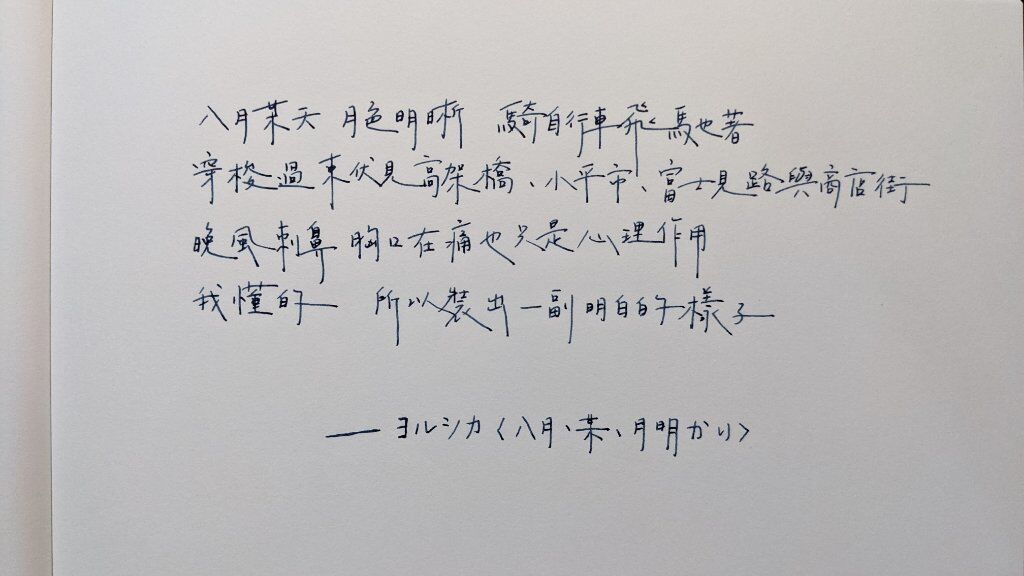 八月某天 月色明晰 騎自行車飛馳著
穿梭過東伏見高架橋、小平市、富士見路與商店街
晚風刺鼻 胸口在痛也只是心理作用
我懂的 所以裝出一副明白的樣子
——ヨルシカ〈八月、某、月明かり〉